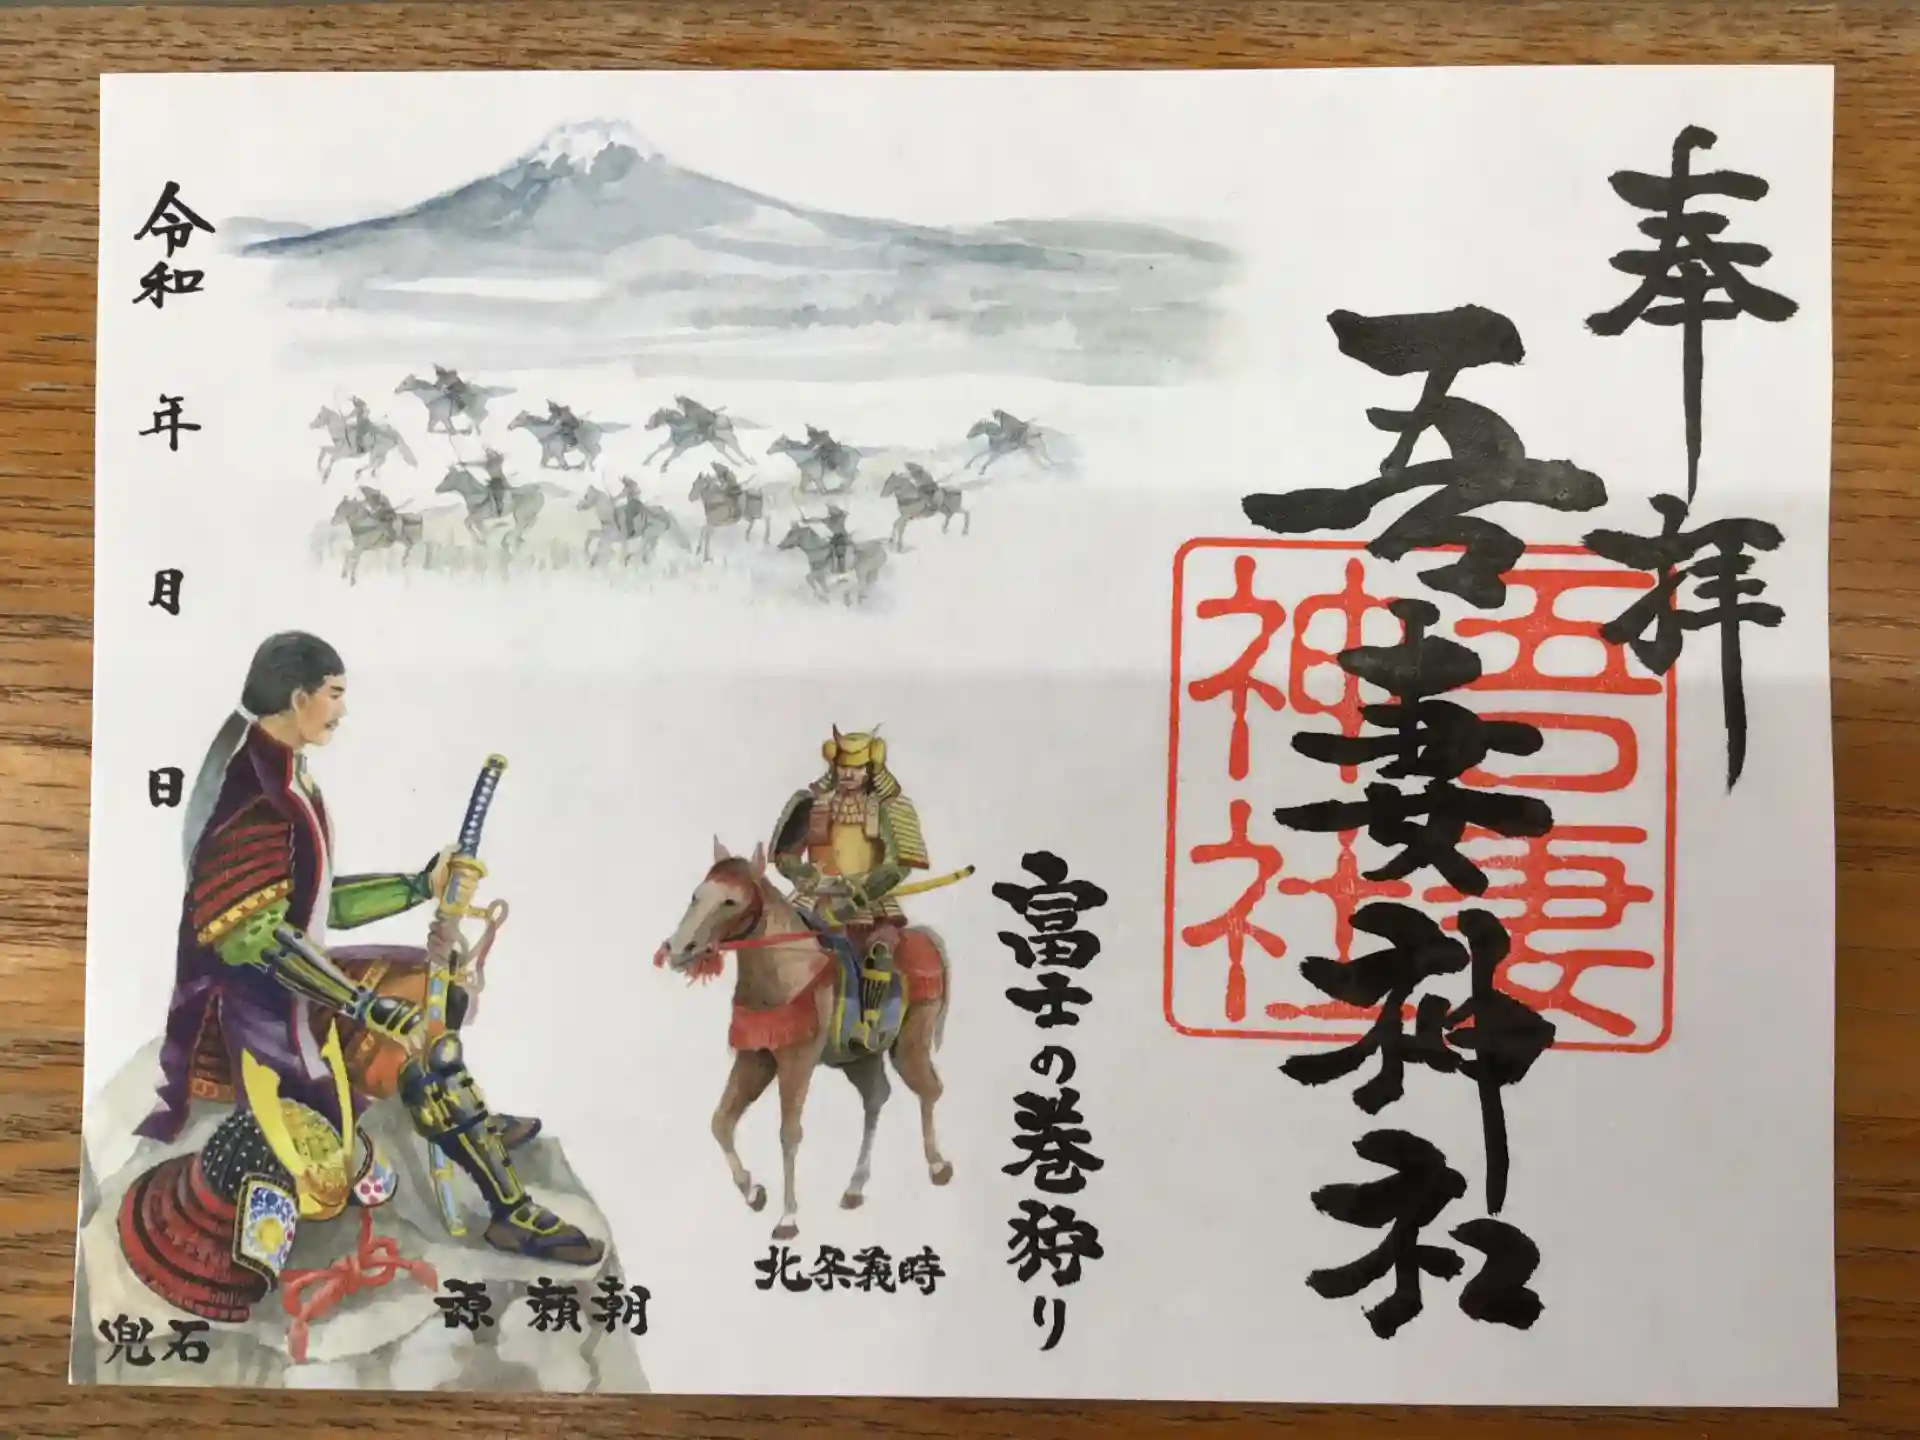 奉拝
吾妻神社
吾妻
神社
富士の巻狩り
北条義時
源頼朝
兜石
令和 年 月 日